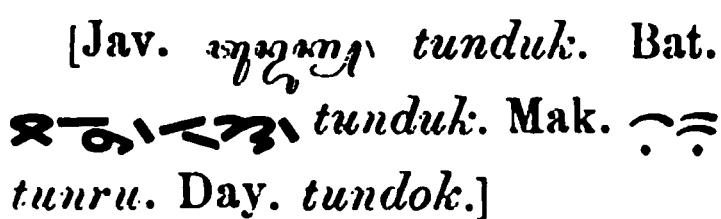 [Jav. tunduk. Bat.
tunduk. Mak. ᨈᨘᨑᨘ
tunru. Day. tundok.]